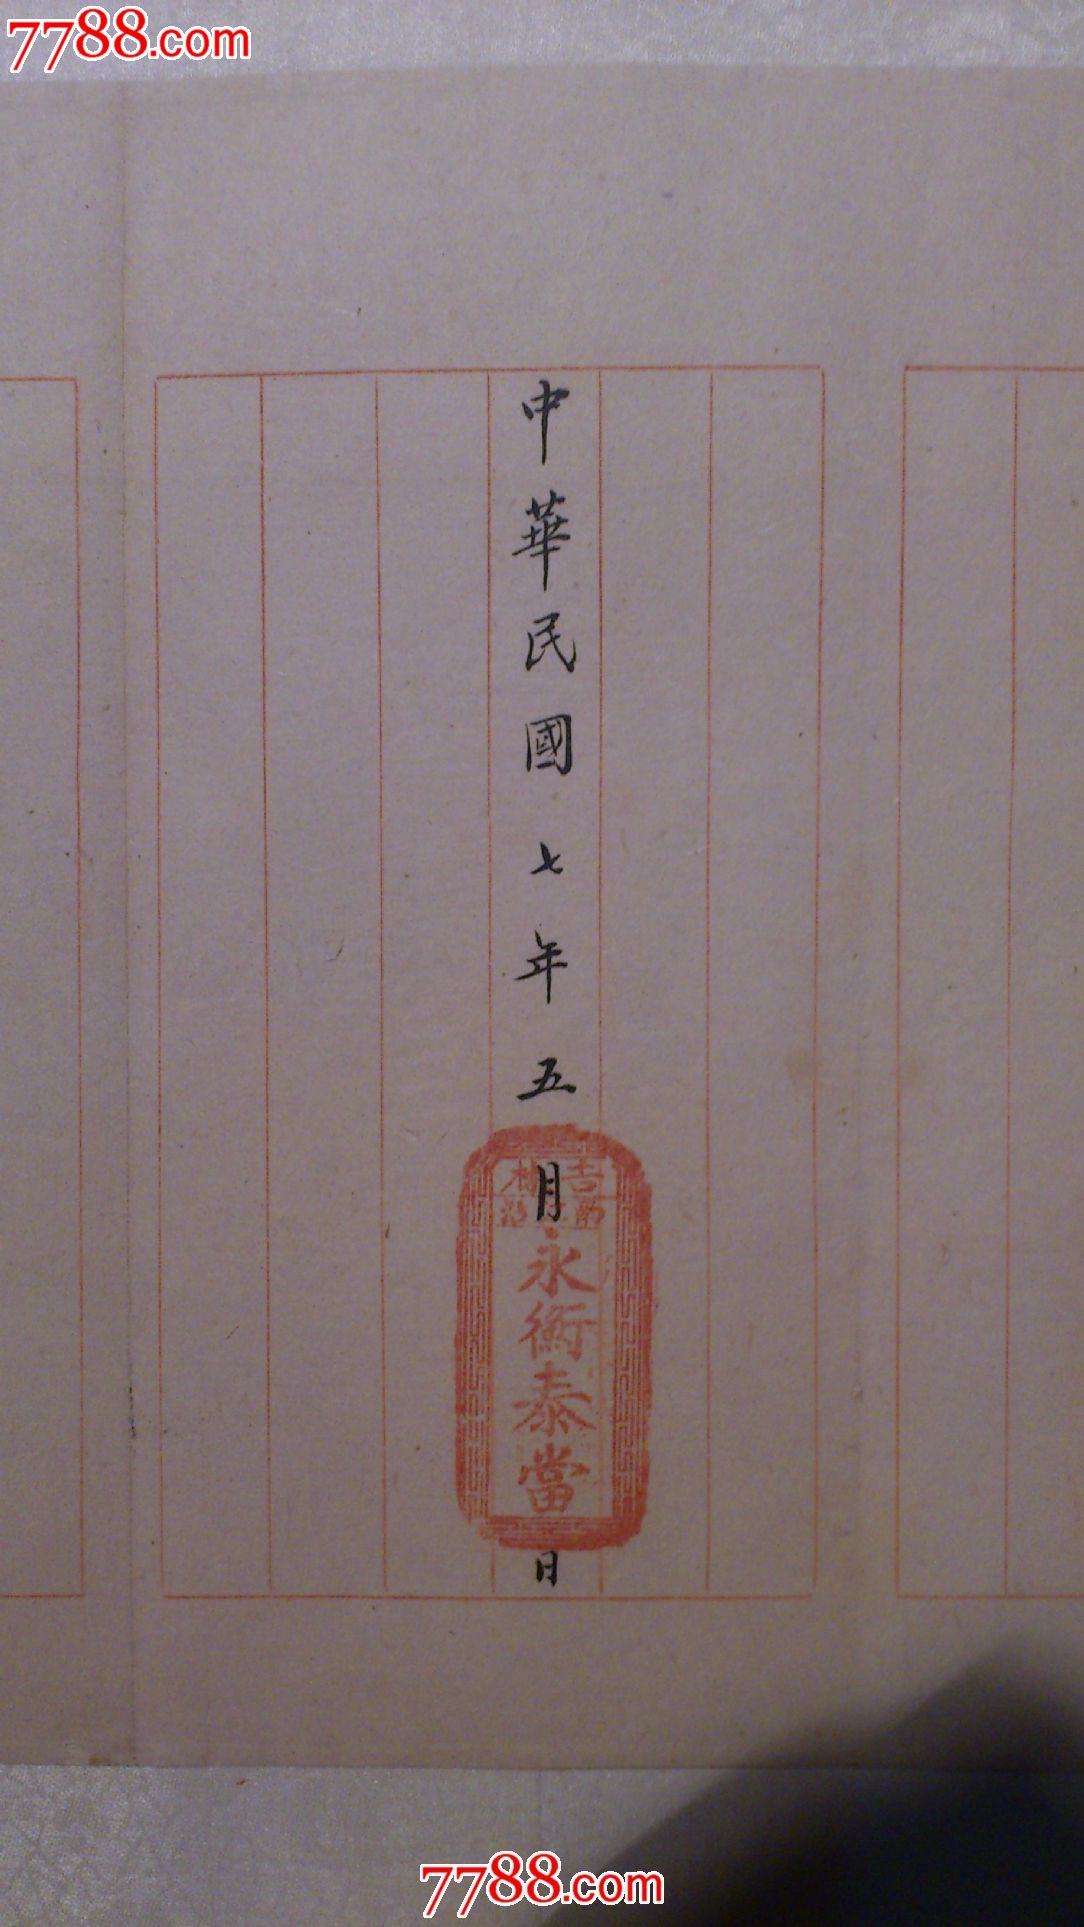 7788.com
中華民國七年五月日
吉林
永衡泰當
7788.com